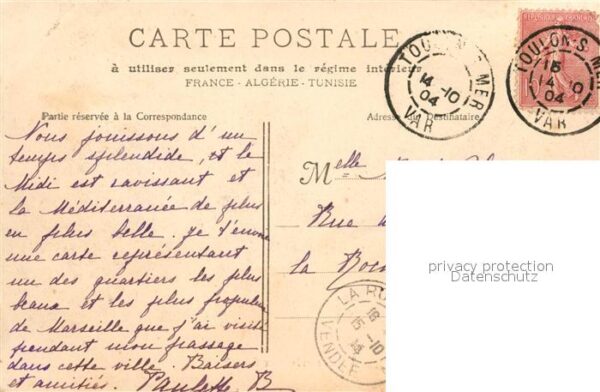 CARTE POSTALE
à utiliser seulement dans le régime intérieur
FRANCE - ALGÉRIE - TUNISIE
Partie réservée à la Correspondance
Adresse du Destinataire
TOULON-S-MER
14 -10
04
VAR
TOULON-S-MER
15
14 -10
04
VAR
Nous jouissons d'un
temps splendide, et le
Midi est ravissant et
la Méditerranée de plus
en plus belle. Je t'envoie
une carte représentant
un des quartiers les plus
beaux et les plus populeux
de Marseille que j'ai visité
pendant mon passage
dans cette ville. Baisers
et amitiés. Paulette B
Melle
Rue
la
LA RO
15 -10
VENDÉE
privacy protection
Datenschutz